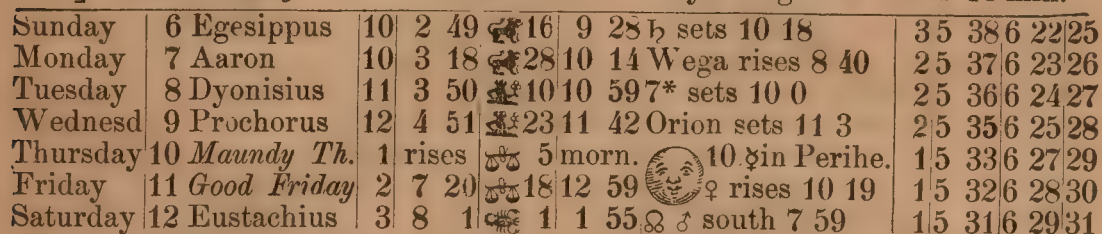 Sunday 6 Egesippus 10 2 49 16 9 28 ♄ sets 10 18 3 5 38 6 22 25
Monday 7 Aaron 10 3 18 28 10 14 Wega rises 8 40 2 5 37 6 23 26
Tuesday 8 Dyonisius 11 3 50 10 10 59 7* sets 10 0 2 5 36 6 24 27
Wednesd 9 Prochorus 12 4 51 23 11 42 Orion sets 11 3 2 5 35 6 25 28
Thursday 10 Maundy Th. 1 rises ♎ 5 morn. 10. ☿ in Perihe. 1 5 33 6 27 29
Friday 11 Good Friday 2 7 20 ♎ 18 12 59 ♀ rises 10 19 1 5 32 6 28 30
Saturday 12 Eustachius 3 8 1 1 1 55 ☊ ♂ south 7 59 1 5 31 6 29 31